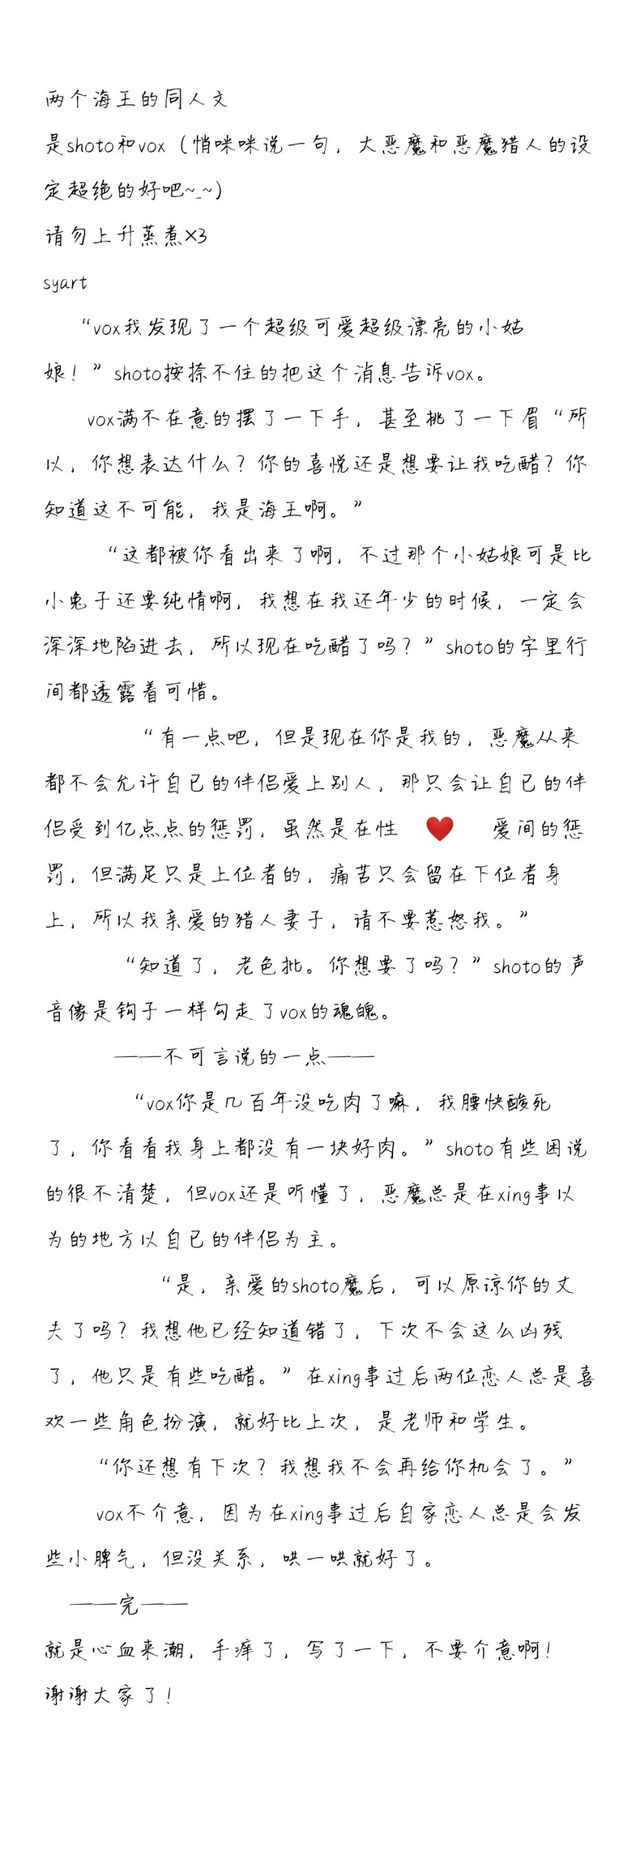 两个海王的同人文
是shoto和vox（悄咪咪说一句，大恶魔和恶魔猎人的设
定超绝的好吧~_~）
请勿上升蒸煮×3
syart
“vox我发现了一个超级可爱超级漂亮的小姑
娘！”shoto按捺不住的把这个消息告诉vox。
vox满不在意的摆了一下手，甚至挑了一下眉“所
以，你想表达什么？你的喜悦还是想要让我吃醋？你
知道这不可能，我是海王啊。”
“这都被你看出来了啊，不过那个小姑娘可是比
小兔子还要纯情啊，我想在我还年少的时候，一定会
深深地陷进去，所以现在吃醋了吗？”shoto的字里行
间都透露着可惜。
“有一点吧，但是现在你是我的，恶魔从来
都不会允许自己的伴侣爱上别人，那只会让自己的伴
侣受到亿点点的惩罚，虽然是在性❤️爱间的惩
罚，但满足只是上位者的，痛苦只会留在下位者身
上，所以我亲爱的猎人妻子，请不要惹怒我。”
“知道了，老色批。你想要了吗？”shoto的声
音像是钩子一样勾走了vox的魂魄。
——不可言说的一点——
“vox你是几百年没吃肉了嘛，我腰快酸死
了，你看看我身上都没有一块好肉。”shoto有些困说
的很不清楚，但vox还是听懂了，恶魔总是在xing事以
为的地方以自己的伴侣为主。
“是，亲爱的shoto魔后，可以原谅你的丈
夫了吗？我想他已经知道错了，下次不会这么凶残
了，他只是有些吃醋。”在xing事过后两位恋人总是喜
欢一些角色扮演，就好比上次，是老师和学生。
“你还想有下次？我想我不会再给你机会了。”
vox不介意，因为在xing事过后自家恋人总是会发
些小脾气，但没关系，哄一哄就好了。
——完——
就是心血来潮，手痒了，写了一下，不要介意啊！
谢谢大家了！